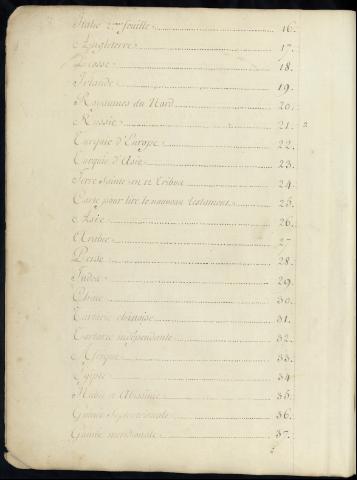 Italie 2me feuille 16.
Angleterre 17.
Ecosse 18.
Irlande 19.
Royaumes du Nord 20.
Russie 21. 2
Turquie d'Europe 22.
Turquie d'Asie 23.
Terre Sainte en 12 Tribus 24.
Carte pour lire le nouveau testament 25.
Asie 26.
Arabie 27.
Perse 28.
Indes 29.
Chine 30.
Tartarie chinoise 31.
Tartarie indépendante 32.
Afrique 33.
Egypte 34.
Nubie et Abissinie 35.
Guinée Septentrionale 36.
Guinée meridionale 37.